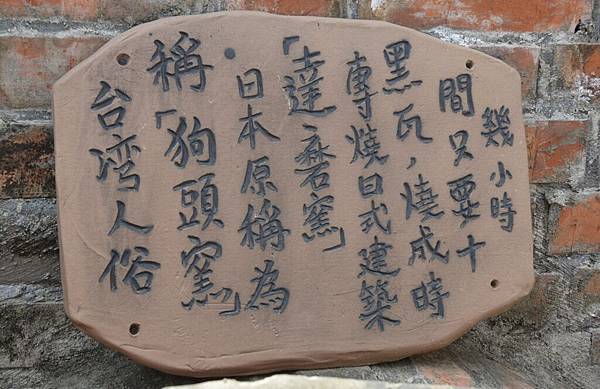 台湾人俗
稱「狗頭窯」
日本原稱為
「達磨窯」
專燒日式建築
黑瓦，燒成時
間只要十
幾小時